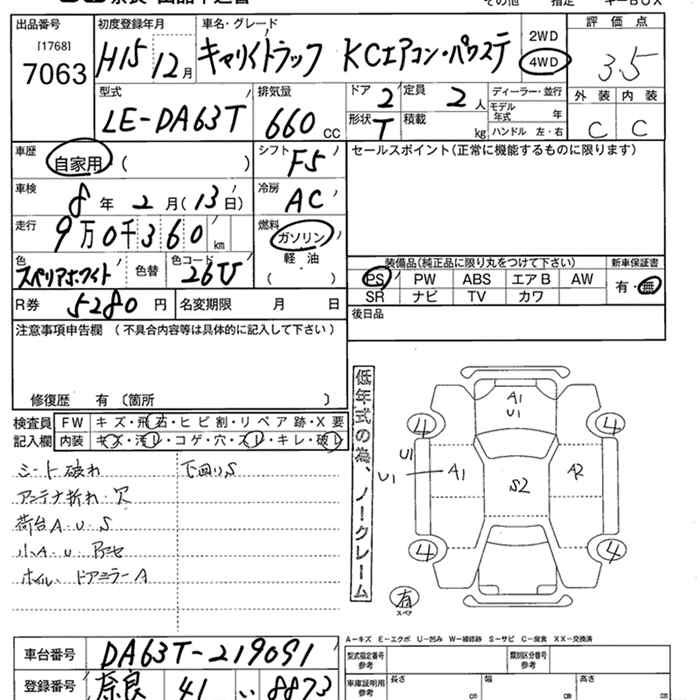 出品番号
[1768]
7063
初度登録年月
H15 12月
車名・グレード
キャリイトラック KCエアコン・パワステ
2WD
4WD
評価点
3.5
外装 内装
C C
型式
LE-DA63T
排気量
660 CC
ドア 2
定員 2人
形状 T
積載 kg
ディーラー・並行
モデル年式 年
ハンドル 左・右
車歴
自家用 ( )
シフト F5
セールスポイント(正常に機能するものに限ります)
車検
8年2月(13日)
冷房
AC
走行
9万0千360km
燃料
ガソリン
軽油
( )
色
スペリアホワイト
色替
色コード
26U
装備品(純正品に限り丸をつけて下さい)
新車保証書
PS PW ABS エアB AW
SR ナビ TV カワ
有・無
R券 5280円
名変期限 月 日
後日品
注意事項申告欄(不具合内容等は具体的に記入して下さい)
修復歴 有〔箇所 〕
検査員 FW キズ・飛石・ヒビ割・リペア跡・X要
記入欄 内装 キズ・汚レ・コゲ・穴・スレ・キレ・破レ
シート破れ
下回りS
アンテナ折れ・穴
荷台A・U・S
小A・U
ホイル・ドアミラーA
低年式の為、ノークレーム
A1
U1
4 4
U1
A1
S2
A2
4 4
有
スペア
A-キズ E-エクボ U-凹み W-補修跡 S-サビ C-腐食 XX-交換済
車台番号
DA63T-219091
型式指定番号
参考
類別区分番号
参考
登録番号
奈良 41 い 8873
車庫証明用
参考
長さ cm
幅 cm
高さ cm